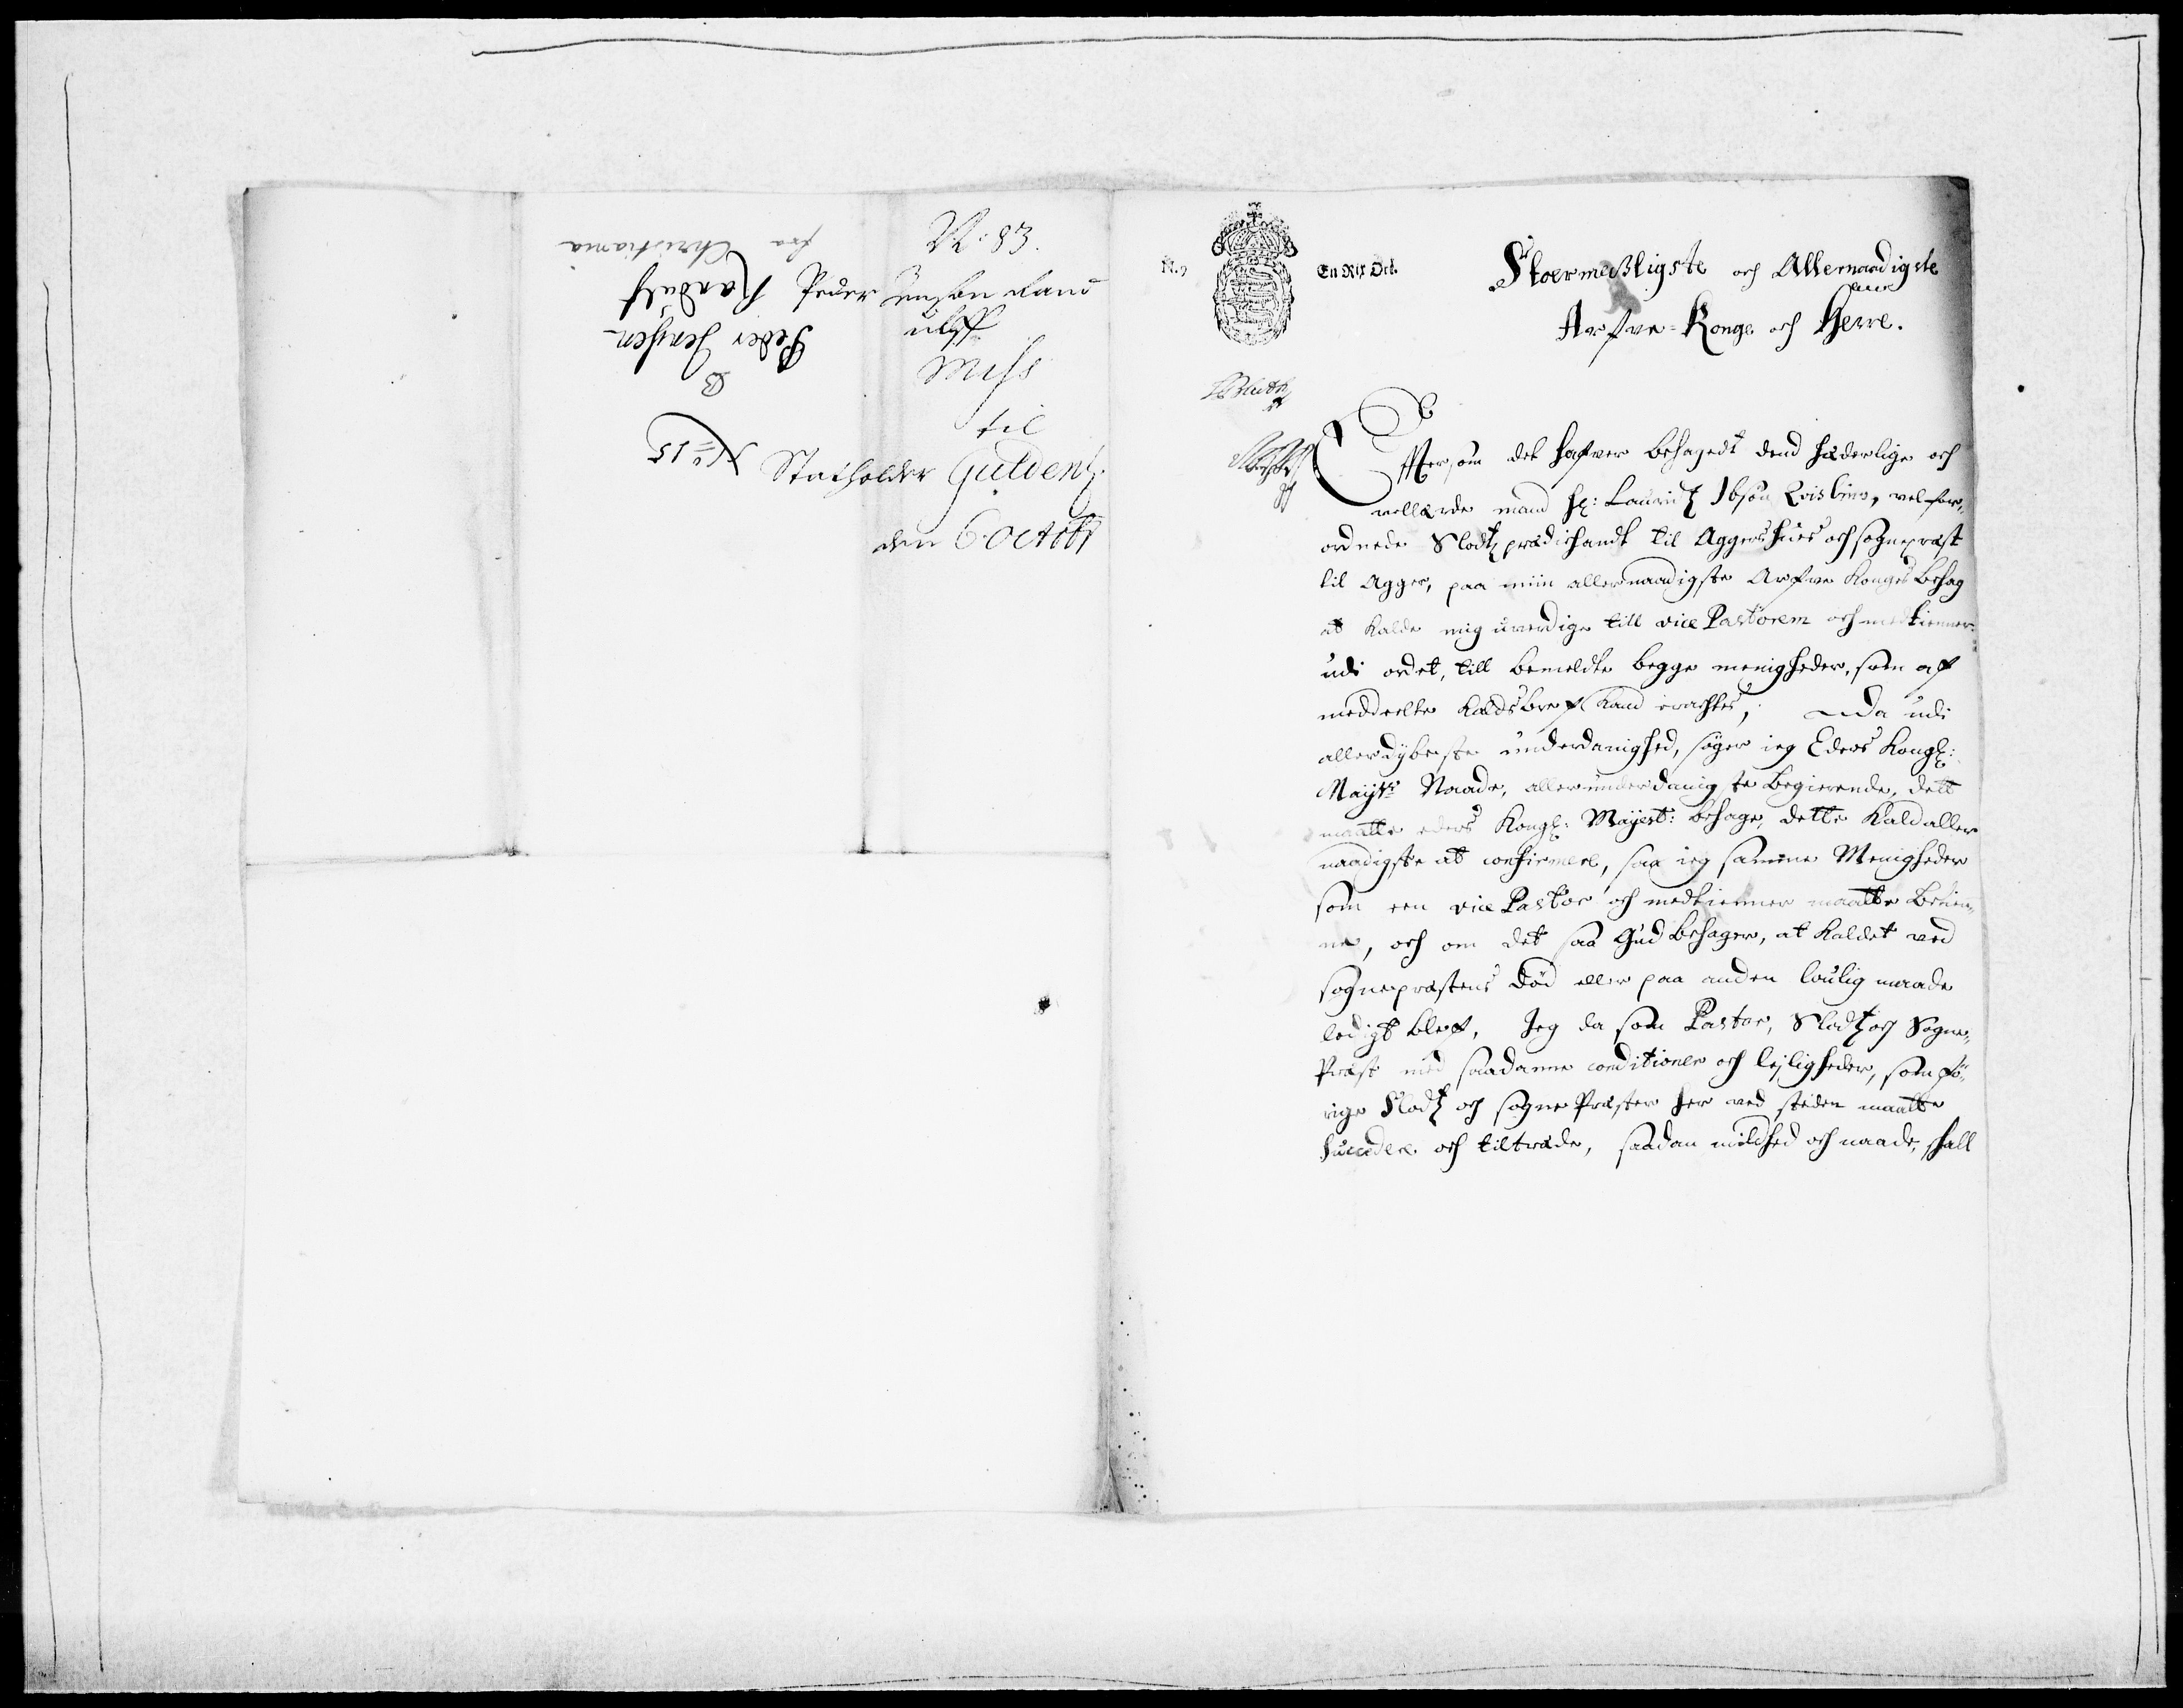 N: 83.
Peder Jenssen Rand
ulff
Miss
til
Statholder Guldenl.
den 6 Octobr
fra Christiania
Peder Jenssen
Randulf
No 15
En Rix Ort.
Stoermegtigste och Allernaadigste
Arfve-Konge och Herre.
Effter som det hafver behagedt dend hæderlige och
vellærde mand Hr: Lauridtz Ibsøn Qvislin, vel for,,
ordnede Slodtz prædichandt til Aggershuus och sognepræst
til Agger, paa min allernaadigste Arfve Konges behag
at kalde mig uverdige till vice Pastorem och medtienner
udi ordet, till bemeldte begge menigheder, som af
meddeelte kaldsbref kand erachtes, Da udi
allerdybeste underdanighed, søger ieg Eders Kongl:
Mayts: Naade, allerunderdanigste begierende, dett
maatte eders Kongl: Mayest: behage, dette kald aller
naadigste at confirmere, saa ieg samme Menigheder
som een vice Pastor och medtienner maatte betien,,
ne, och om det saa Gud behager, at kaldet ved
sognepræstens død eller paa anden loulig maade
ledigt blef, Jeg da som Pastor, Slodtz och Sogne,,
Præst med saadanne conditioner och lejligheder, som fo,,
rige Slodtz och sogne Præster her ved steden maatte
succedere och tiltræde, saadan mildhed och naade, shall